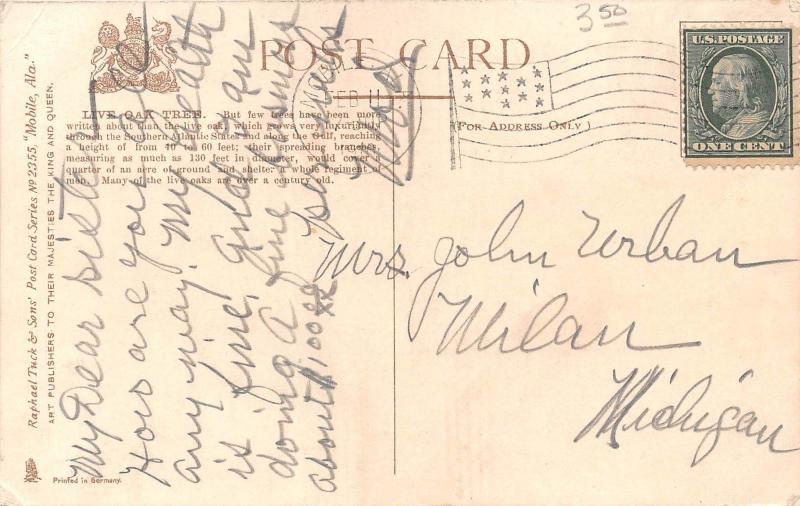 3 50
POST CARD
U.S. POSTAGE
ONE CENT
FEB 11
(FOR ADDRESS ONLY)
LIVE OAK TREE. But few trees have been more
written about than the live oak, which grows very luxuriantly
through the Southern Atlantic States and along the Gulf, reaching
a height of from 40 to 60 feet; their spreading branches,
measuring as much as 130 feet in diameter, would cover a
quarter of an acre of ground and shelter a whole regiment of
men. Many of the live oaks are over a century old.
Raphael Tuck & Sons' Post Card Series Nº 2355, "Mobile, Ala."
ART PUBLISHERS TO THEIR MAJESTIES THE KING AND QUEEN.
Printed in Germany.
My Dear sister
How are you
any way. My health
is fine,
doing a fine business
about $100 00
Mrs. John Urban
Milan
Michigan